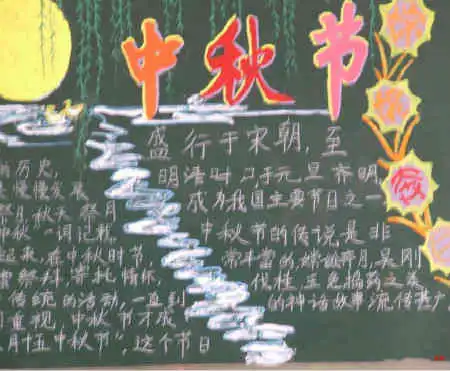 中秋节
的历史,
慢慢发展
祭月,秋天祭月
中秋"一词记载
起来,在中秋时节,
祭拜,寄托情怀,
传统的活动,一直到
重视,中秋节才成
月十五中秋节",这个节日
盛行于宋朝,至
明清时,与元旦齐名,
成为我国主要节日之一
中秋节的传说是非
常丰富的,嫦娥奔月,吴刚
伐桂,玉兔捣药之类
的神话故事流传甚广